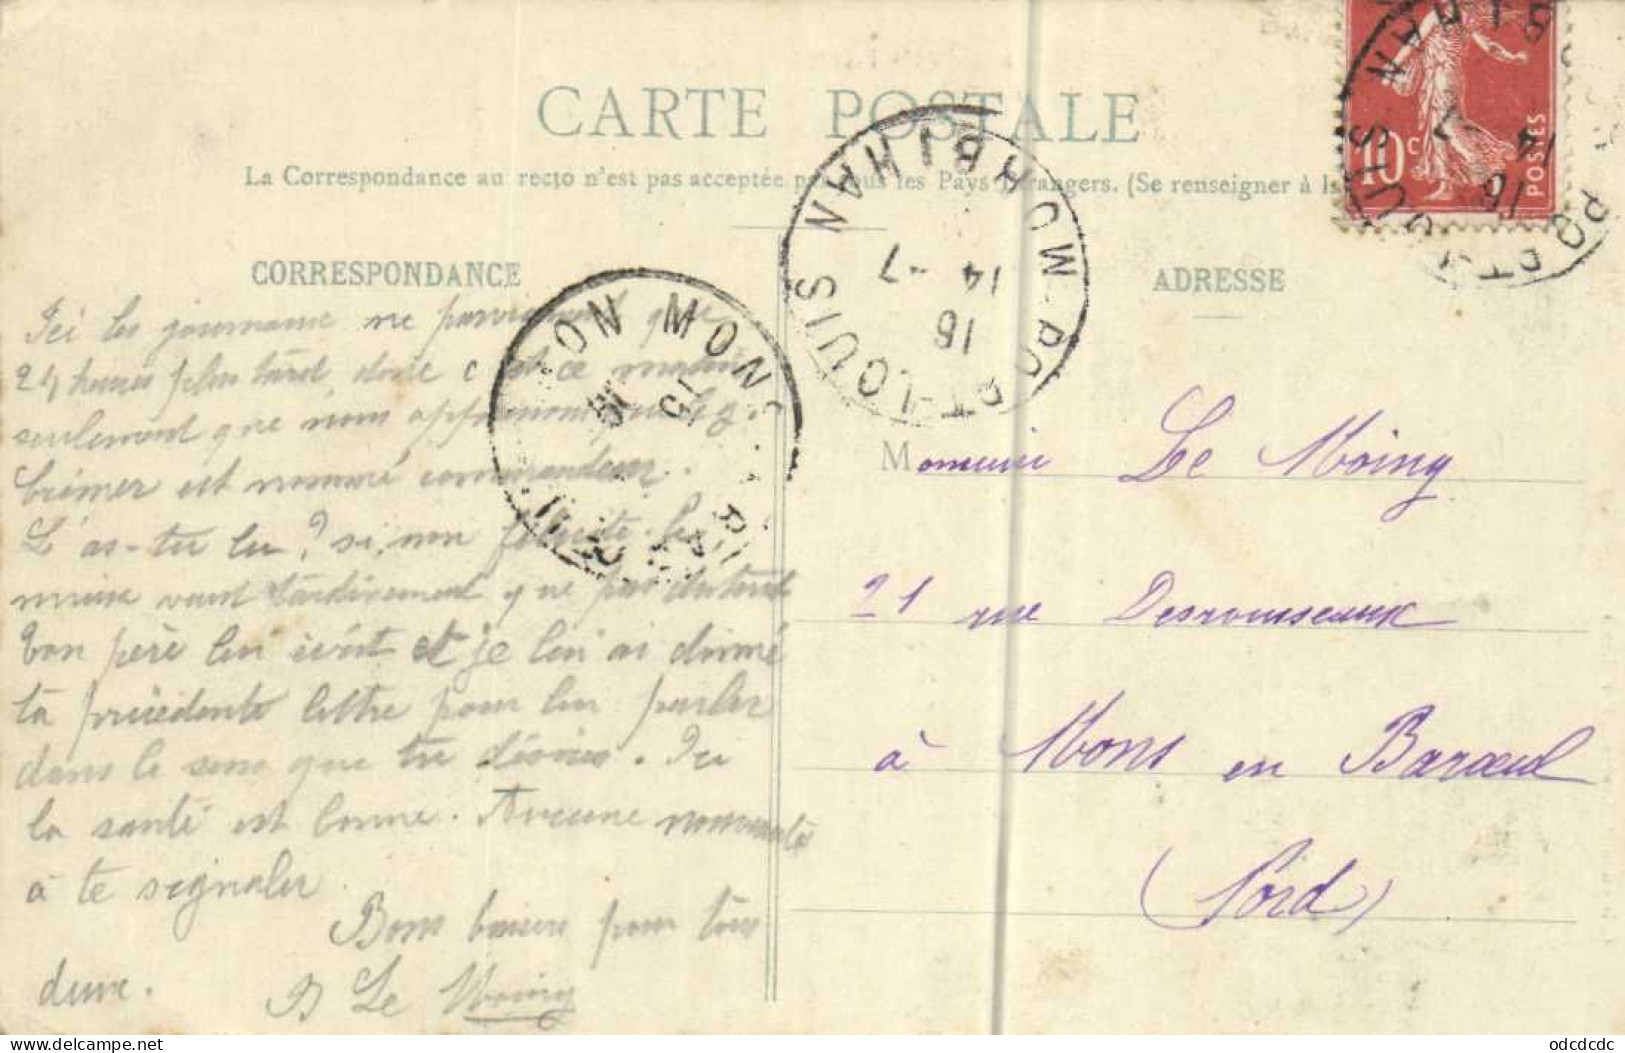 CARTE POSTALE
La Correspondance au recto n'est pas acceptée par tous les Pays Etrangers. (Se renseigner à la
CORRESPONDANCE
ADRESSE
10c
POSTES
PORT-LOUIS MORBIHAN
16
14 -7
PORT-LOUIS MORBIHAN
16
14 7
MON
15
Ici les journaux ne parviennent que
24 heures plus tard donc c'est ce matin
seulement que nous apprenons que g.
Crémer est nommé commandeur.
L'as-tu lu ? si non félicite-le,
mieux vaut tardivement que pas du tout
Ton père lui écrit et je lui ai donné
ta précédente lettre pour lui parler
dans le sens que tu désires. Ici
la santé est bonne. Aucune nouveauté
à te signaler
Bons baisers pour tous
deux. Le Moing
Monsieur Le Moing
21 rue Desrousseaux
à Mons en Baroeul
(Nord)
odcdcdc